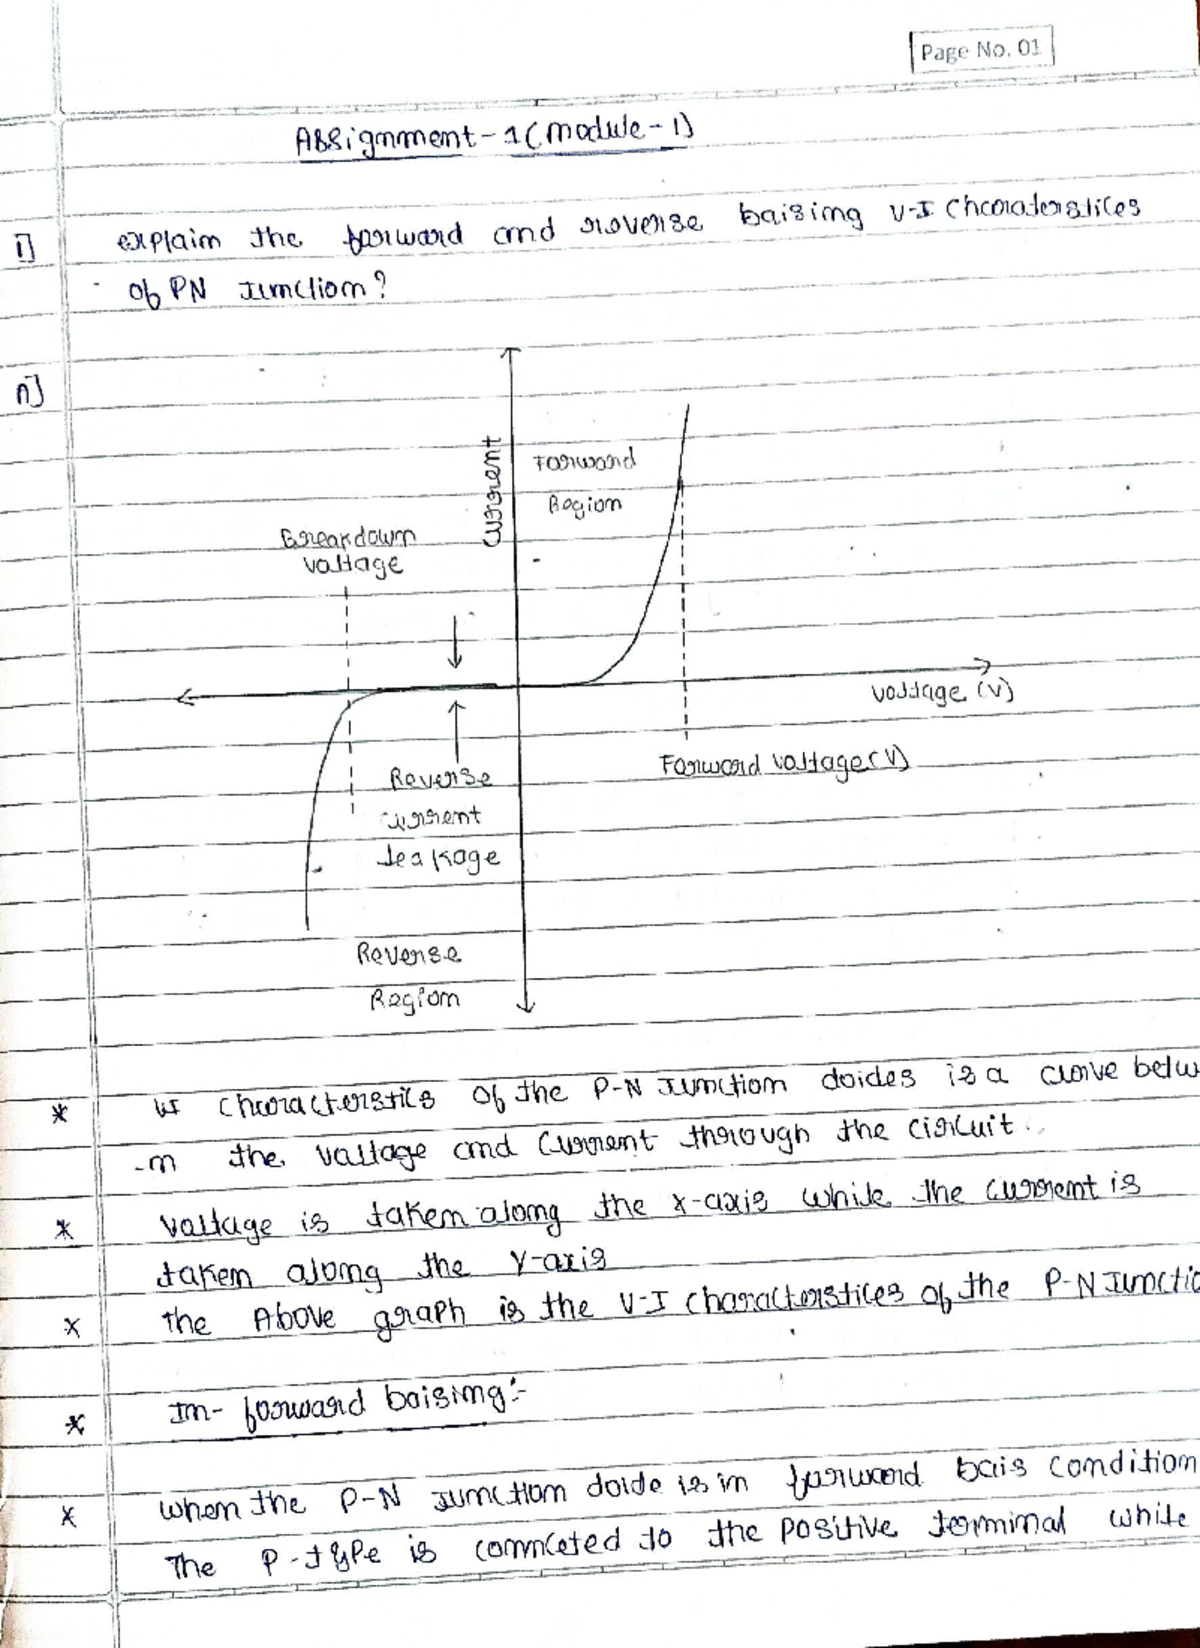 Page No. 01
Assignment - 1 (Module - 1)
1] explain the forward and reverse baising V-I Chcoraterstices
of PN Junction?
A]
Current
Forward
Region
Breakdown
voltage
Voltage (V)
Forward voltage (V)
Reverse
current
leakage
Reverse
Region
* VI Characterstics Of the P-N Junction doides is a curve betw
-n the voltage and Current through the circuit.
* Voltage is taken along the x-axis while the current is
taken along the Y-axis
* the Above graph is the V-I Characterstices of the P-N Junctio
* In- forward baising:-
* when the P-N Junction doide is in forward bais condition
The P-type is connceted to the positive terminal while